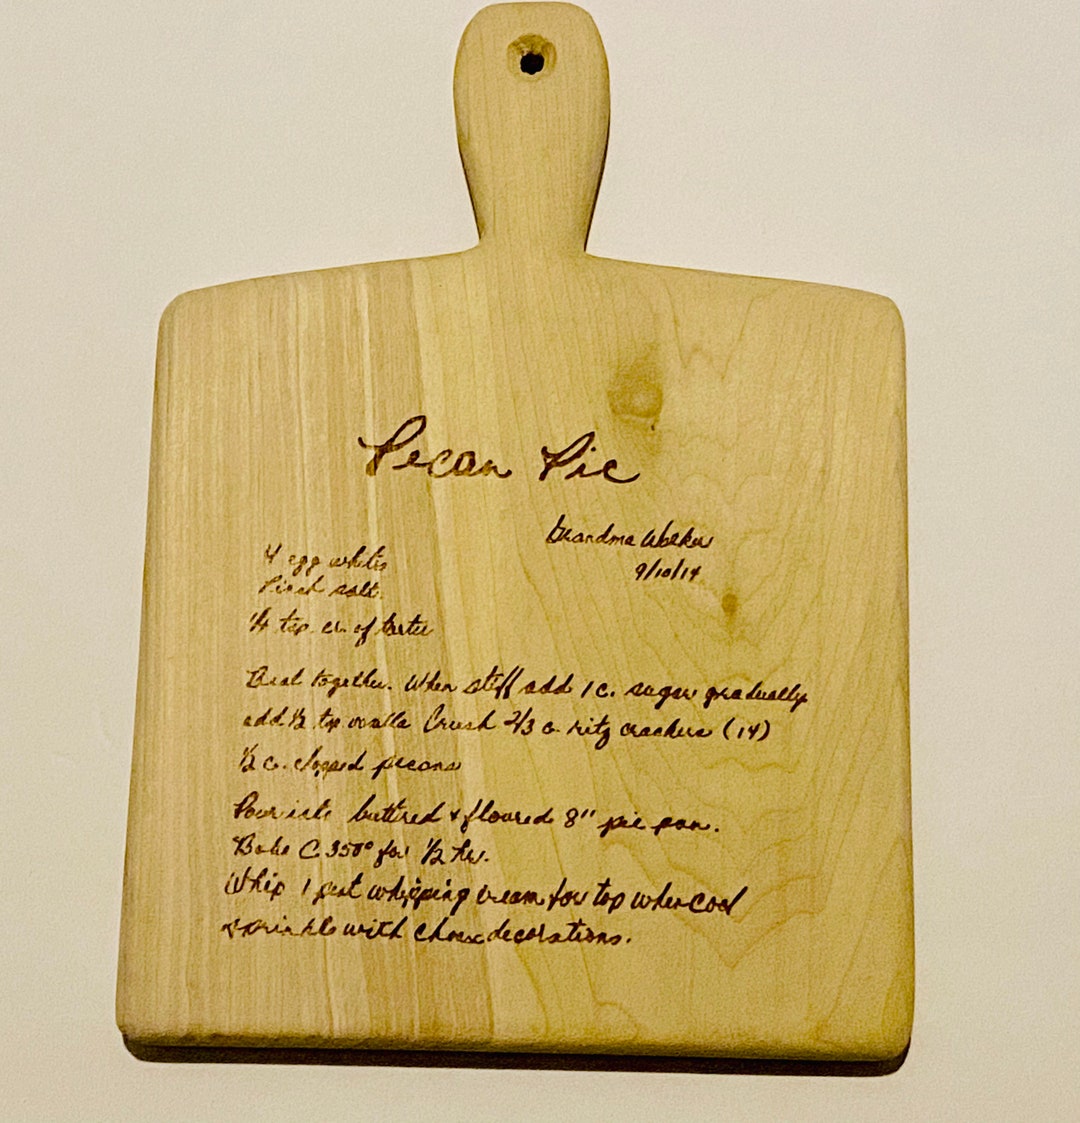 Pecan Pie
Grandma Walker
9/10/14
4 egg whites
Pinch salt.
1/4 tsp. cr. of tarter
Beat together. When stiff add 1 c. sugar gradually
add 1/2 tsp vanilla Crush 2/3 c. ritz crackers (14)
1/2 c. chopped pecans
Pour into buttered & floured 8" pie pan.
Bake C. 350° for 1/2 hr.
Whip 1 pint whipping cream for top when cool
sprinkle with decorations.